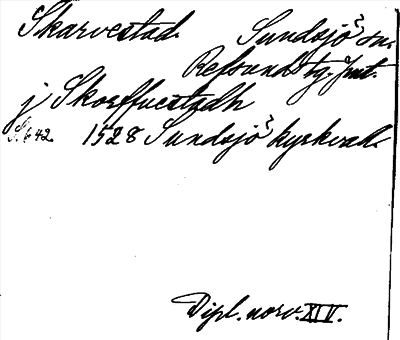 Skarvestad. Sundsjö sn.
Refsunds tg. Jmt.
j Skorffuestadh
S. 642 1528 Sundsjö kyrkvall.
Dipl. norv. XIV.